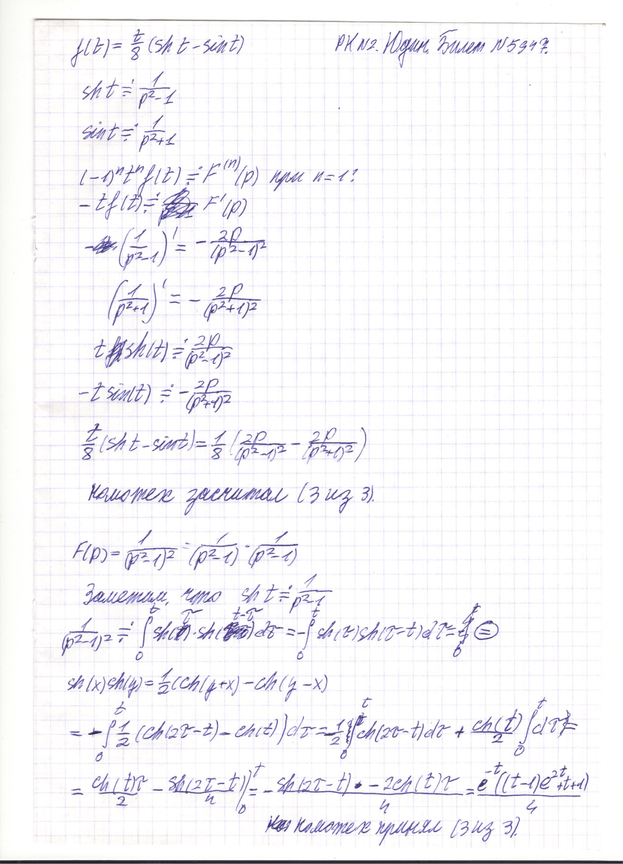 f(t) = t/8 (sh t - sin t) РК №2. Юдин. Билет №5947.
sh t ≓ 1/(p²-1)
sin t ≓ 1/(p²+1)
(-1)ⁿtⁿf(t) ≓ F⁽ⁿ⁾(p) при n=1:
-tf(t) ≓ F'(p)
(1/(p²-1))' = - 2p/(p²-1)²
(1/(p²+1))' = - 2p/(p²+1)²
t sh(t) ≓ 2p/(p²-1)²
-t sin(t) ≓ - 2p/(p²+1)²
t/8 (sh t - sin t) = 1/8 (2p/(p²-1)² - 2p/(p²+1)²)
засчитал (3 из 3).
F(p) = 1/(p²-1)² = 1/(p²-1) · 1/(p²-1)
Заметим, что sh t ≓ 1/(p²-1)
1/(p²-1)² ≓ ∫₀ᵗ sh(τ)·sh(t-τ)dτ = -∫₀ᵗ sh(τ)sh(τ-t)dτ = ⊜
sh(x)sh(y) = 1/2 (ch(y+x) - ch(y-x)
= -∫₀ᵗ 1/2 (ch(2τ-t) - ch(t))dτ = -1/2 ∫₀ᵗ ch(2τ-t)dτ + ch(t)/2 ∫₀ᵗ dτ =
= ch(t)τ/2 - sh(2τ-t)/4 |₀ᵗ = - (sh(2τ-t) - 2ch(t)τ)/4 = e⁻ᵗ((t-1)e²ᵗ+t+1)/4
принял (3 из 3).